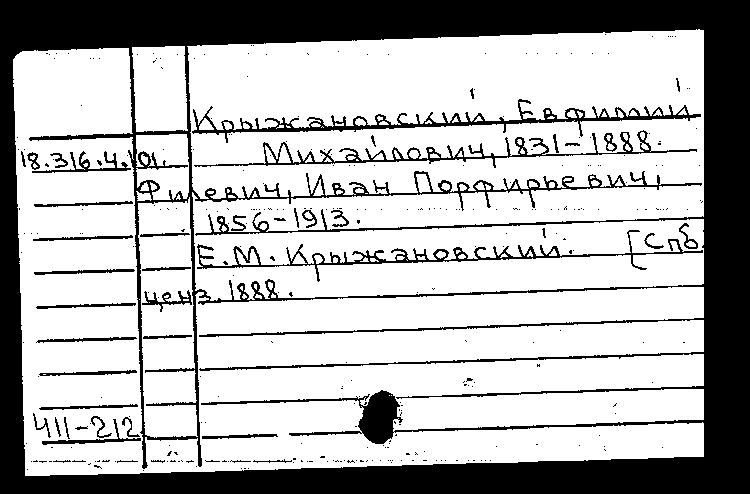 Крыжановский, Евфимий
18.316.4.101. Михайлович, 1831-1888.
Филевич, Иван Порфирьевич,
1856-1913.
Е.М. Крыжановский. [Спб.
ценз. 1888.
411-212